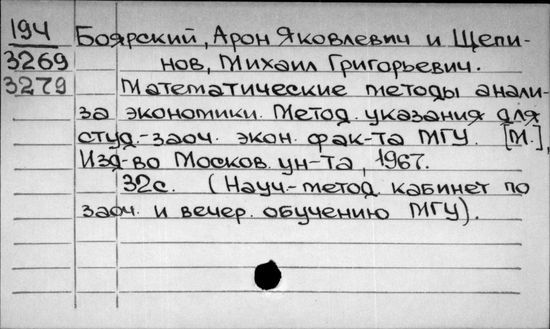 194 Боярский, Арон Яковлевич и Щепи-
3269 нов, Михаил Григорьевич.
3279 Математические методы анали-
за экономики. Метод. указания для
студ.-заоч. экон. фак-та МГУ. [М.],
Изд-во Москов. ун-та, 1967.
32с. (Науч.-метод. кабинет по
заоч. и вечер. обучению МГУ).